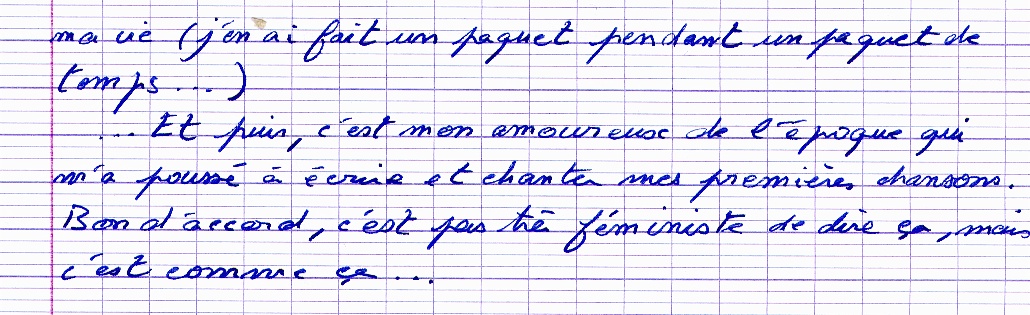 ma vie (j'en ai fait un paquet pendant un paquet de
temps...)
... Et puis, c'est mon amoureux de l'époque qui
m'a poussé à écrire et chanter mes premières chansons.
Bon d'accord, c'est pas très féministe de dire ça, mais
c'est comme ça...